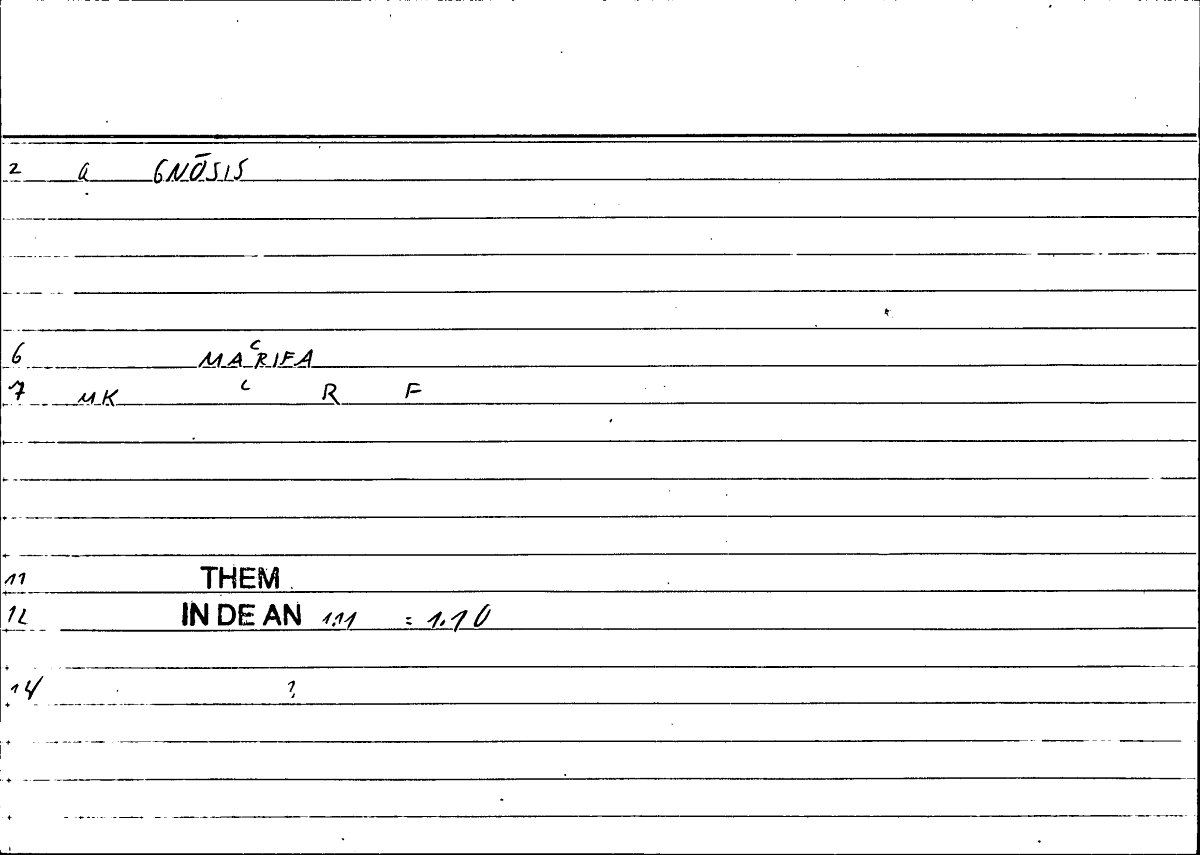 2 a GNŌSIS
6 MAʿRIFA
7 MK ʿ R F
11 THEM
12 IN DE AN 1.11 = 1.10
14 ?